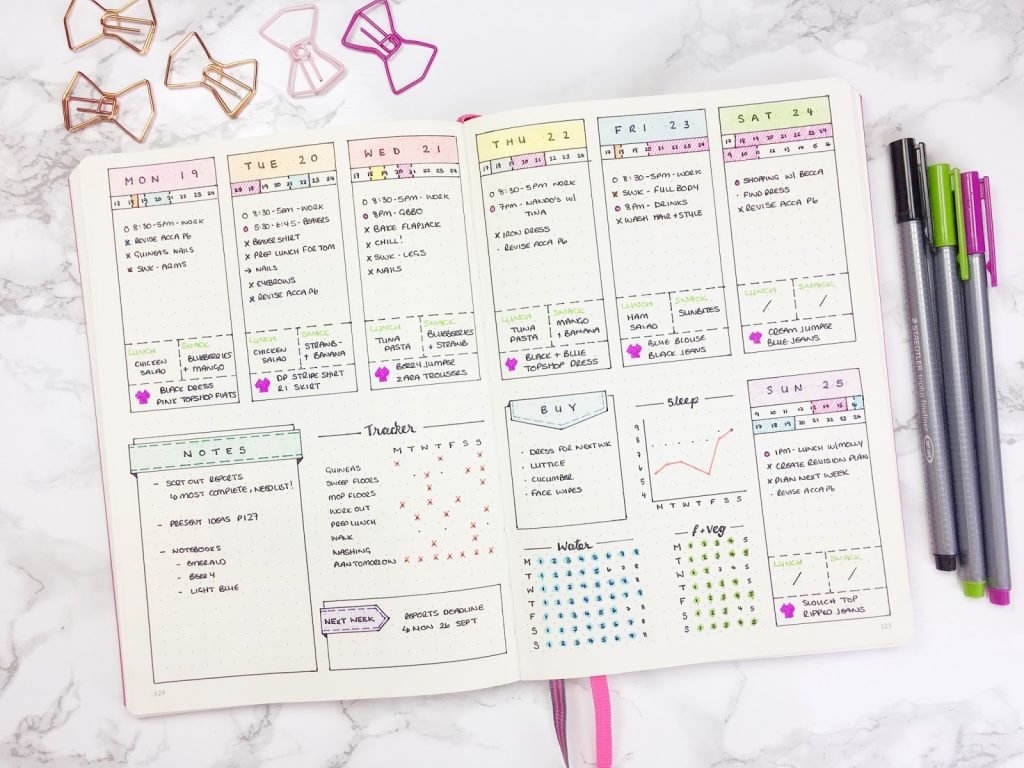 MON 19
17 18 19 20 21 22 23 24
O 8:30-5PM - WORK
x REVISE ACCA P6
x GUINEAS NAILS
x SWK - ARMS
LUNCH SNACK
CHICKEN SALAD
BLUEBERRIES + MANGO
BLACK DRESS
PINK TOPSHOP FLATS
TUE 20
O 8:30-5PM - WORK
O 5:30-6:45 - BEAVERS
x BEAVER SHIRT
x PREP LUNCH FOR TOM
→ NAILS
x EYEBROWS
x REVISE ACCA P6
LUNCH SNACK
CHICKEN SALAD
STRAWB- + BANANA
DP STRIPE SHIRT
RI SKIRT
WED 21
17 18 19 20 21 22 23 24
O 8:30-5PM - WORK
O 8PM - GBBO
x BAKE FLAPJACK
x CHILL!
x SWK - LEGS
x NAILS
LUNCH SNACK
TUNA PASTA
BLUEBERRIES + STRAWB
BERRY JUMPER
ZARA TROUSERS
THU 22
17 18 19 20 21 22 23 24
O 8:30-5PM WORK
O 7PM - NANDO'S W/
TINA
x IRON DRESS
· REVISE ACCA P6
LUNCH SNACK
TUNA PASTA
MANGO + BANANA
BLACK + BLUE
TOPSHOP DRESS
FRI 23
17 18 19 20 21 22 23 24
O 8:30-5PM - WORK
x SWK - FULL BODY
O 8PM - DRINKS
x WASH HAIR + STYLE
LUNCH SNACK
HAM SALAD
SUNBITES
BLUE BLOUSE
BLACK JEANS
SAT 24
17 18 19 20 21 22 23 24
9 10 11 12 1 2 3 4 5 6
O SHOPPING W/ BECCA
· FIND DRESS
x REVISE ACCA P6
LUNCH SNACK
/ /
CREAM JUMPER
BLUE JEANS
NOTES
- SORT OUT REPORTS
↳ MOST COMPLETE, NEED LIST!
- PRESENT IDEAS P127
- NOTEBOOKS
- EMERALD
- BERRY
- LIGHT BLUE
Tracker
M T W T F S S
GUINEAS
SWEEP FLOORS
MOP FLOORS
WORK OUT
PREP LUNCH
WALK
WASHING
PLAN TOMORROW
NEXT WEEK
REPORTS DEADLINE
↳ MON 26 SEPT
BUY
· DRESS FOR NEXT WK
· LUTTICE
· CUCUMBER
· FACE WIPES
Sleep
9
8
7
6
5
4
M T W T F S S
Water
M 1 2 3 4 5 6 7 8
T 1 2 3 4 5 6 7 8
W 1 2 3 4 5 6 7 8
T 1 2 3 4 5 6 7 8
F 1 2 3 4 5 6 7 8
S 1 2 3 4 5 6 7 8
S 1 2 3 4 5 6 7 8
f + veg
M 1 2 3 4 5
T 1 2 3 4 5
W 1 2 3 4 5
T 1 2 3 4 5
F 1 2 3 4 5
S 1 2 3 4 5
S 1 2 3 4 5
SUN 25
17 18 19 20 21 22 23 24
O 1PM - LUNCH W/ MOLLY
x CREATE REVISION PLAN
x PLAN NEXT WEEK
· REVISE ACCA P6
LUNCH SNACK
/ /
SLOUCH TOP
RIPPED JEANS
124
125
STAEDTLER triplus fineliner